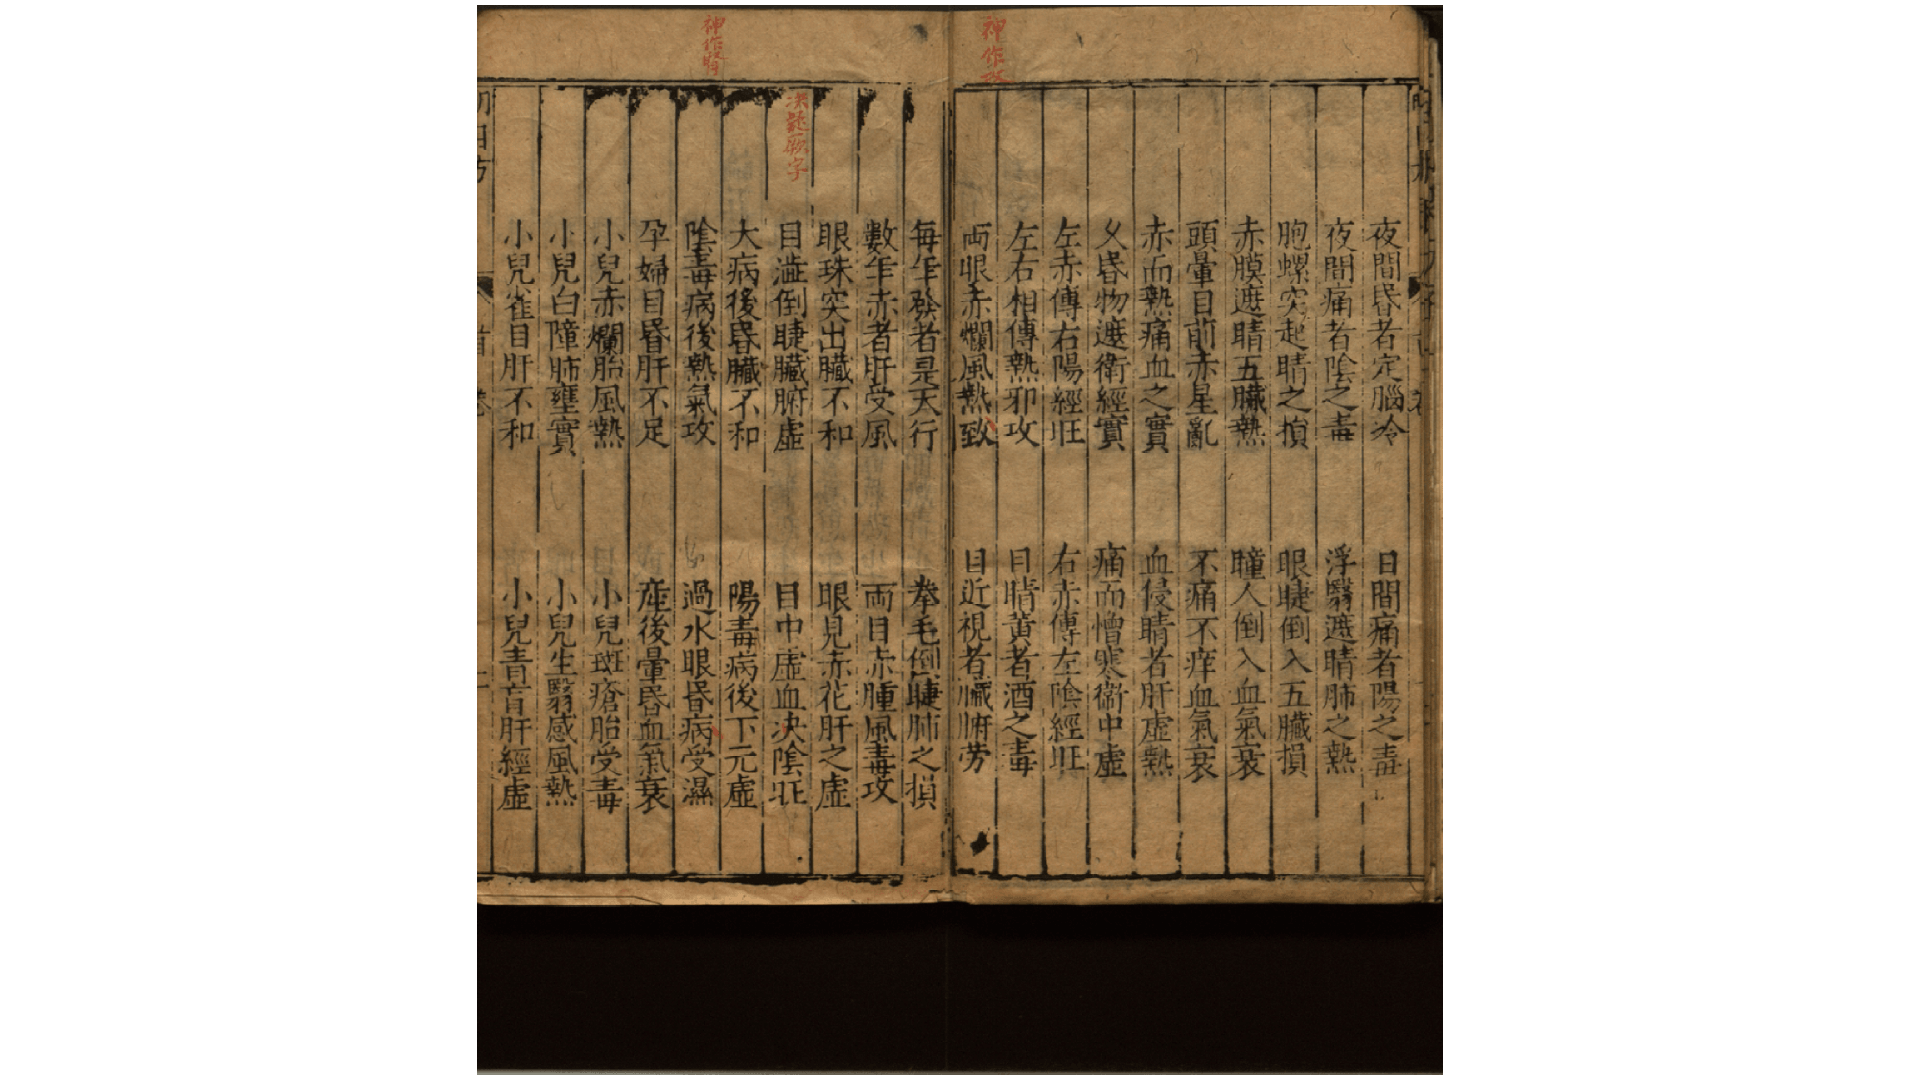 夜間昏者定腦冷　日間痛者陽之毒
夜間痛者陰之毒　浮翳遮睛肺之熱
胞螺突起睛之損　眼睫倒入五臟損
赤膜遮睛五臟熱　瞳人倒入血氣衰
頭暈目前赤星亂　不痛不痒血氣衰
赤而熱痛血之實　血侵睛者肝虛熱
乂昏物遮衛經實　痛而憎寒衛中虛
左赤傳右陽經旺　右赤傳左陰經旺
左右相傳熱邪攻　目睛黃者酒之毒
両眼赤爛風熱致　目近視者臟腑劳
神作
每年發者是天行　拳毛倒睫肺之損
數年赤者肝受風　両目赤腫風毒攻
眼珠突出臟不和　眼見赤花肝之虛
目澁倒睫臟腑虛　目中虛血决陰旺
大病後昏臟不和　陽毒病後下元虛
陰毒病後熱氣攻　過水眼昏病受濕
孕婦目昏肝不足　產後暈昏血氣衰
小兒赤爛胎風熱　小兒斑瘡胎受毒
小兒白障肺壅實　小兒生翳感風熱
小兒雀目肝不和　小兒青盲肝經虛
神作
字
首卷